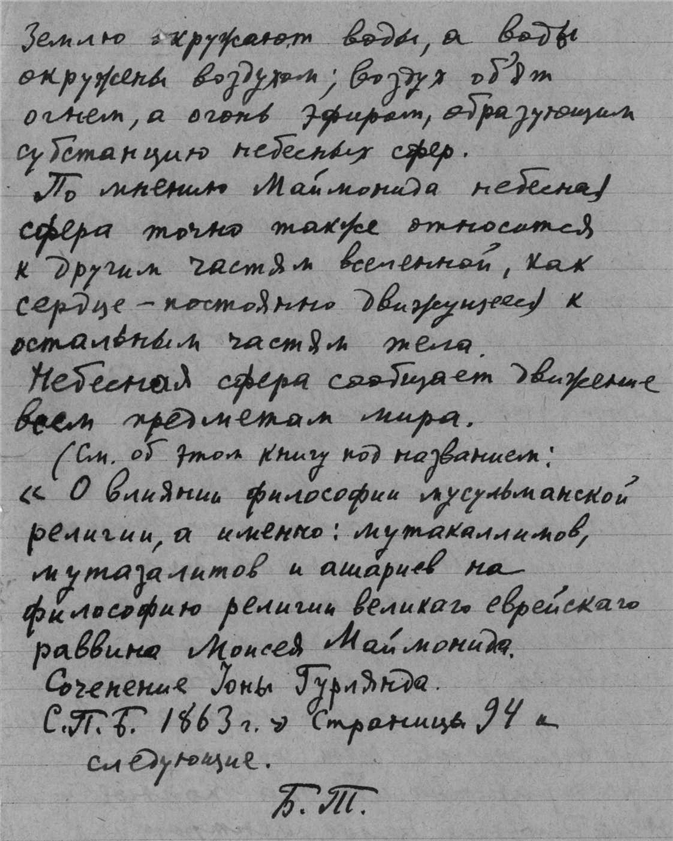 Землю окружают воды, а воды
окружены воздухом; воздух об'ят
огнем, а огонь эфиром, образующим
субстанцию небесных сфер.
По мнению Маймонида небесная
сфера точно также относится
к другим частям вселенной, как
сердце – постоянно движущееся к
остальным частям тела.
Небесная сфера сообщает движение
всем предметам мира.
(См. об этом книгу под названием:
« О влиянии философии мусульманской
религии, а именно: мутакаллимов,
мутазалитов и ашариев на
философию религии великаго еврейскаго
раввина Моисея Маймонида.
Сочепение Iоны Гурлянда.
С.П.Б. 1863 г. » Страницы 94 и
следующие.
Б.Т.